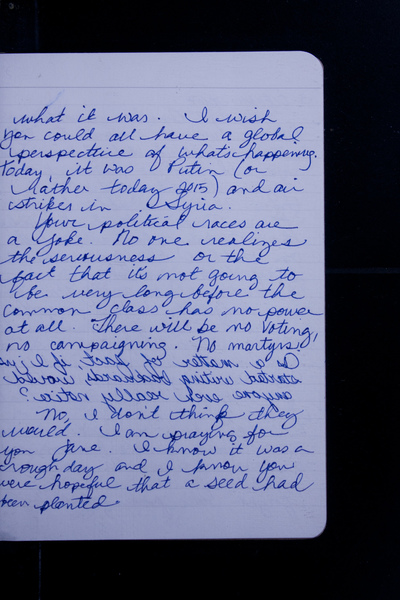 what it was. I wish
you could all have a global
perspective of what's happening.
Today, it was Putin (or
rather today 2015) and air
strikes in Syria.
Your political races are
a joke. No one realizes
the seriousness or the
fact that it's not going to
be very long before the
common class has no power
at all. There will be no voting,
no campaigning. No martyrs.
As a matter of fact, if I jus
started writing backwards, would
anyone ever really notice?
No, I don't think they
would. I am praying for
you Jane. I know it was a
rough day and I know you
were hopeful that a seed had
been planted